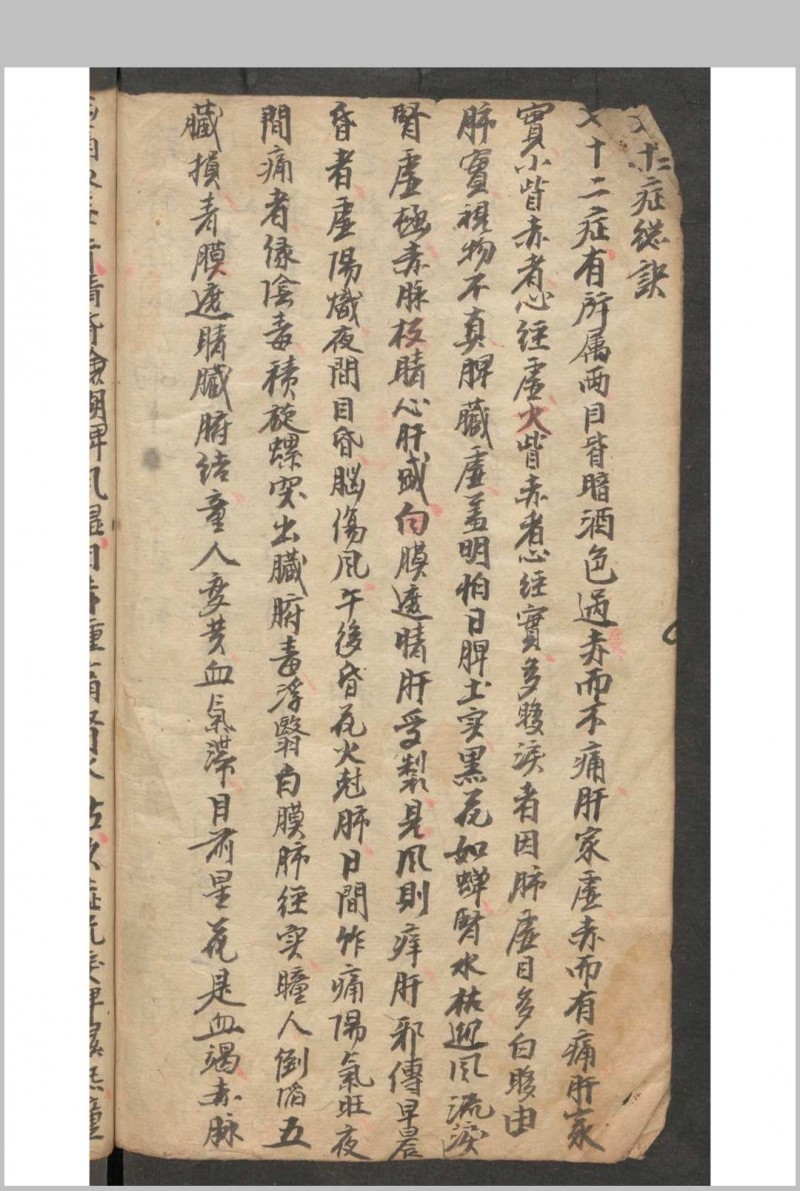 十二症総訣
十二症有所属两目昏暗酒色過赤而不痛肝家虛赤而有痛肝家
實小眥赤者心經虛火眥赤者心經實多眵淚者因肺虛目多白眵由
肺實視物不真脾臓虛羞明怕日脾土实黑花如蝉腎水枯迎风流淚
腎虛極赤脉板睛心肝盛白膜遮睛肝受製見风則痒肝邪傳早晨
昏者虛陽熾夜間目昏腦傷风午後昏花火尅肺日間作痛陽氣旺夜
間痛者係陰毒積旋螺突出臓腑毒浮翳白膜肺經实瞳人倒陷五
臓損青膜遮睛臓腑結童人变黄血氣滞目前星花是血竭赤脉